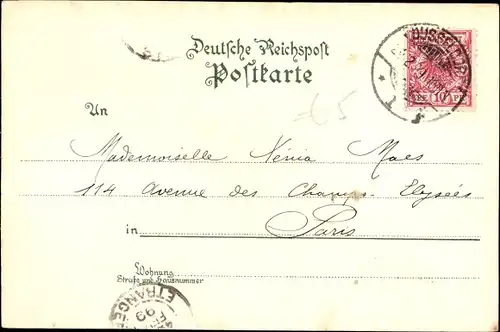 Deutsche Reichspost
Postkarte
DÜSSELDORF
10 PF
65
An
Mademoiselle Xénia Maes
114 Avenue des Champs Elysées
in Paris
Wohnung
Straße und Hausnummer
ETRANGER
99